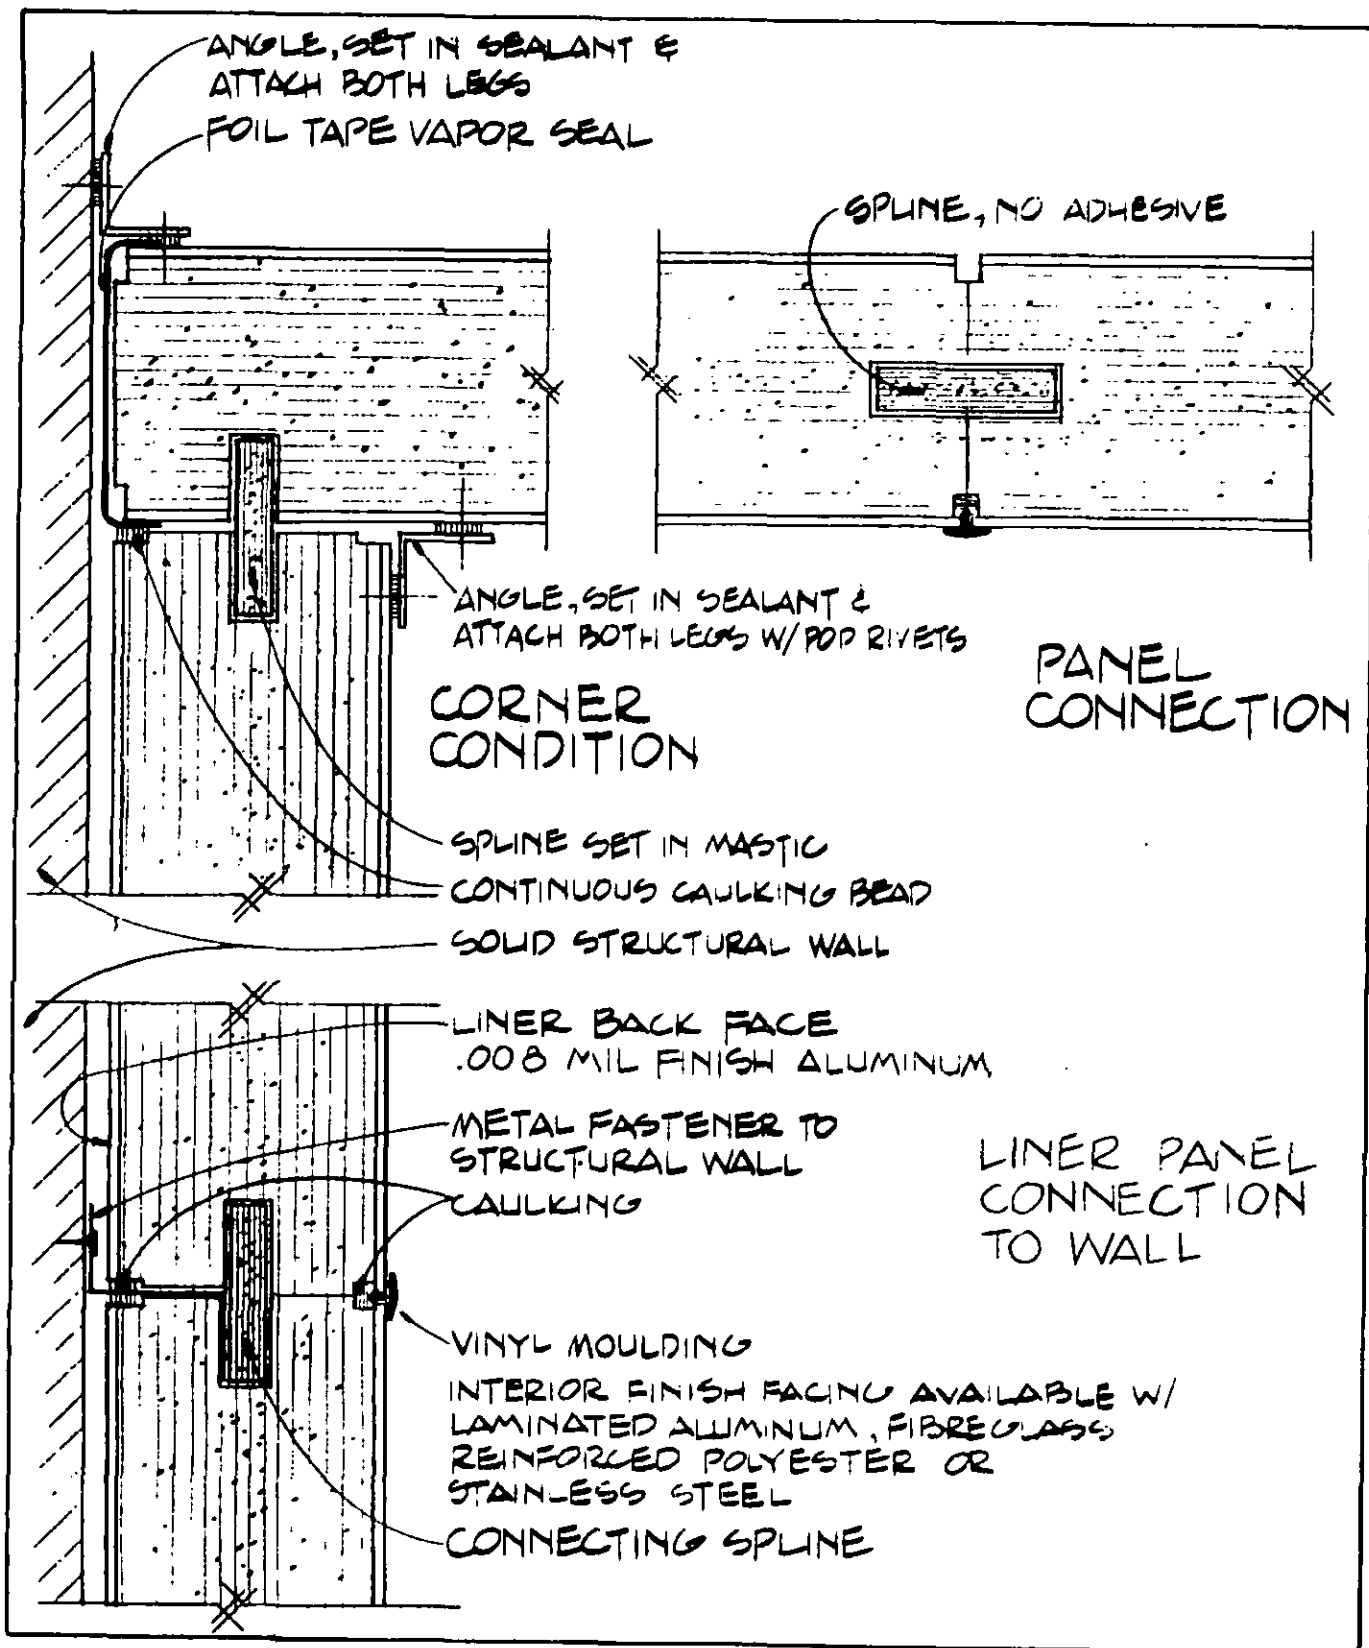 ANGLE, SET IN SEALANT &
ATTACH BOTH LEGS
FOIL TAPE VAPOR SEAL
SPLINE, NO ADHESIVE
ANGLE, SET IN SEALANT &
ATTACH BOTH LEGS W/ POP RIVETS
PANEL
CONNECTION
CORNER
CONDITION
SPLINE SET IN MASTIC
CONTINUOUS CAULKING BEAD
SOLID STRUCTURAL WALL
LINER BACK FACE
.008 MIL FINISH ALUMINUM
METAL FASTENER TO
STRUCTURAL WALL
CAULKING
LINER PANEL
CONNECTION
TO WALL
VINYL MOULDING
INTERIOR FINISH FACING AVAILABLE W/
LAMINATED ALUMINUM, FIBREGLASS
REINFORCED POLYESTER OR
STAINLESS STEEL
CONNECTING SPLINE